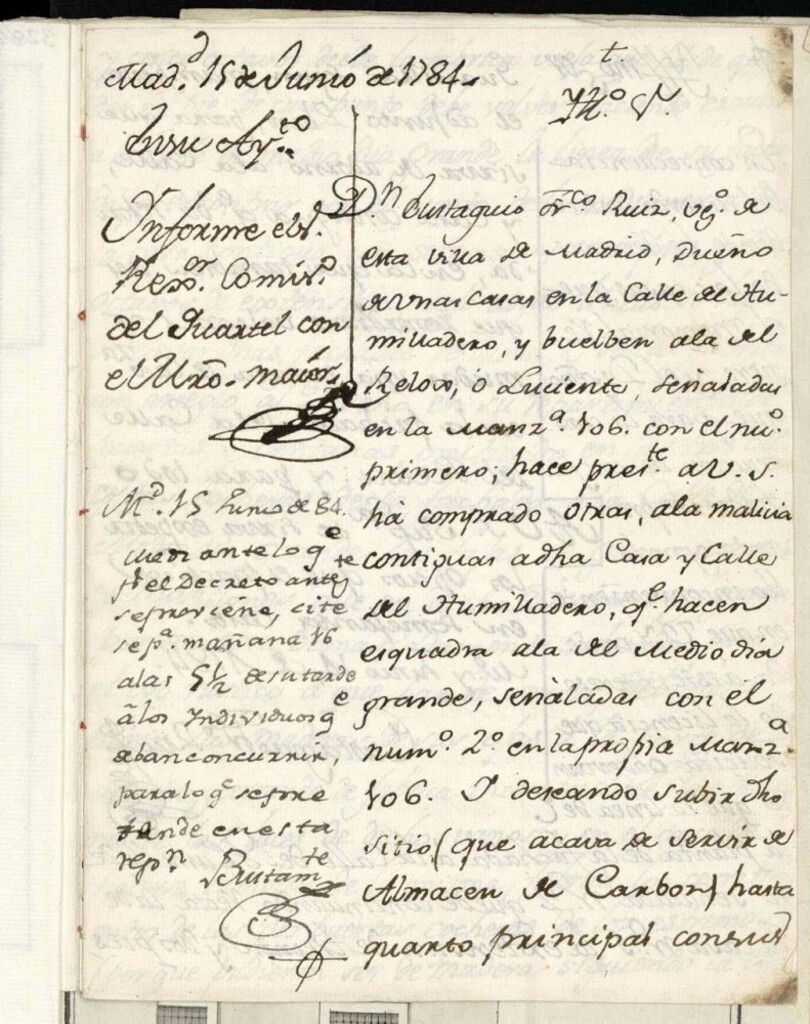 Mad.d 15 de Junio de 1784.
En su Ay.to
Informe el S.r
Rex.or Comis.o
del Quartel con
el Mro. maior
M.d 15 Junio de 84.
mediante lo q.e
p.r el Decreto ante.te
se previene, cite
se p.a mañana 16
a las 5 1/2 de su tarde
á los Individuos q.e
deban concurrir,
para lo q.e se pre
tende en esta
rep.n
t.
Yll.o S.r
D.n Eustaquio Fr.co Ruiz, vz.o de
esta villa de Madrid, Dueño
de unas casas en la Calle del Hu-
milladero, y buelben a la del
Relox, ó Luciente, señaladas
en la Manz.a 106. con el nu.o
primero; hace pres.te a V. S.
há comprado otras, a la malicia
contiguas a dha Casa y Calle
del Humilladero, q.e hacen
esquadra a la del Medio dia
grande, señaladas con el
num.o 2.o en la propia Manz.a
106. Y deseando subir dho
sitio (que acava de servir de
Almacen de Carbon) hasta
quarto principal